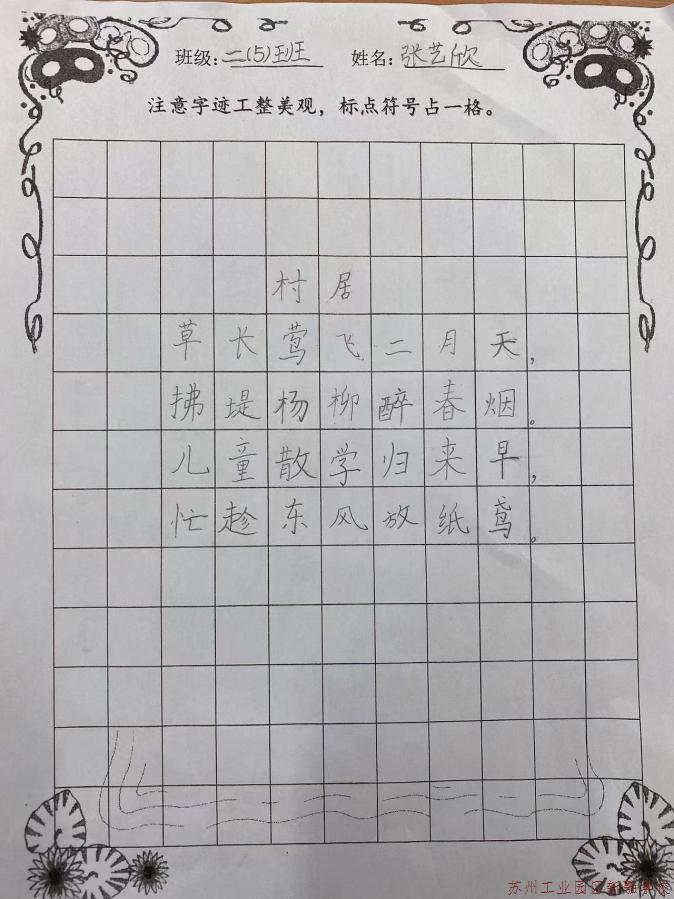 班级:二(5)班 姓名:张艺欣
注意字迹工整美观，标点符号占一格。
村居
草长莺飞二月天，
拂堤杨柳醉春烟。
儿童散学归来早，
忙趁东风放纸鸢。
苏州工业园区新